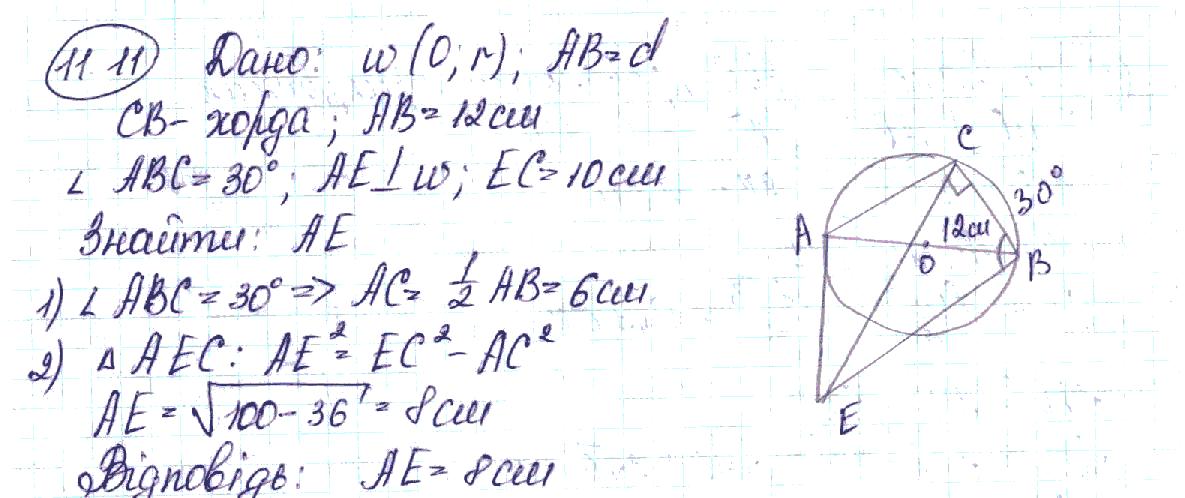 11.11 Дано: w(O; r); AB=d
CB- хорда; AB=12см
∠ ABC=30°; AE⊥w; EC=10см
Знайти: AE
1) ∠ ABC=30°=> AC= 1/2 AB=6см
2) △ AEC: AE²= EC²-AC²
AE=√100-36=8см
Відповідь: AE=8см
C
30°
12см
A
O
B
E